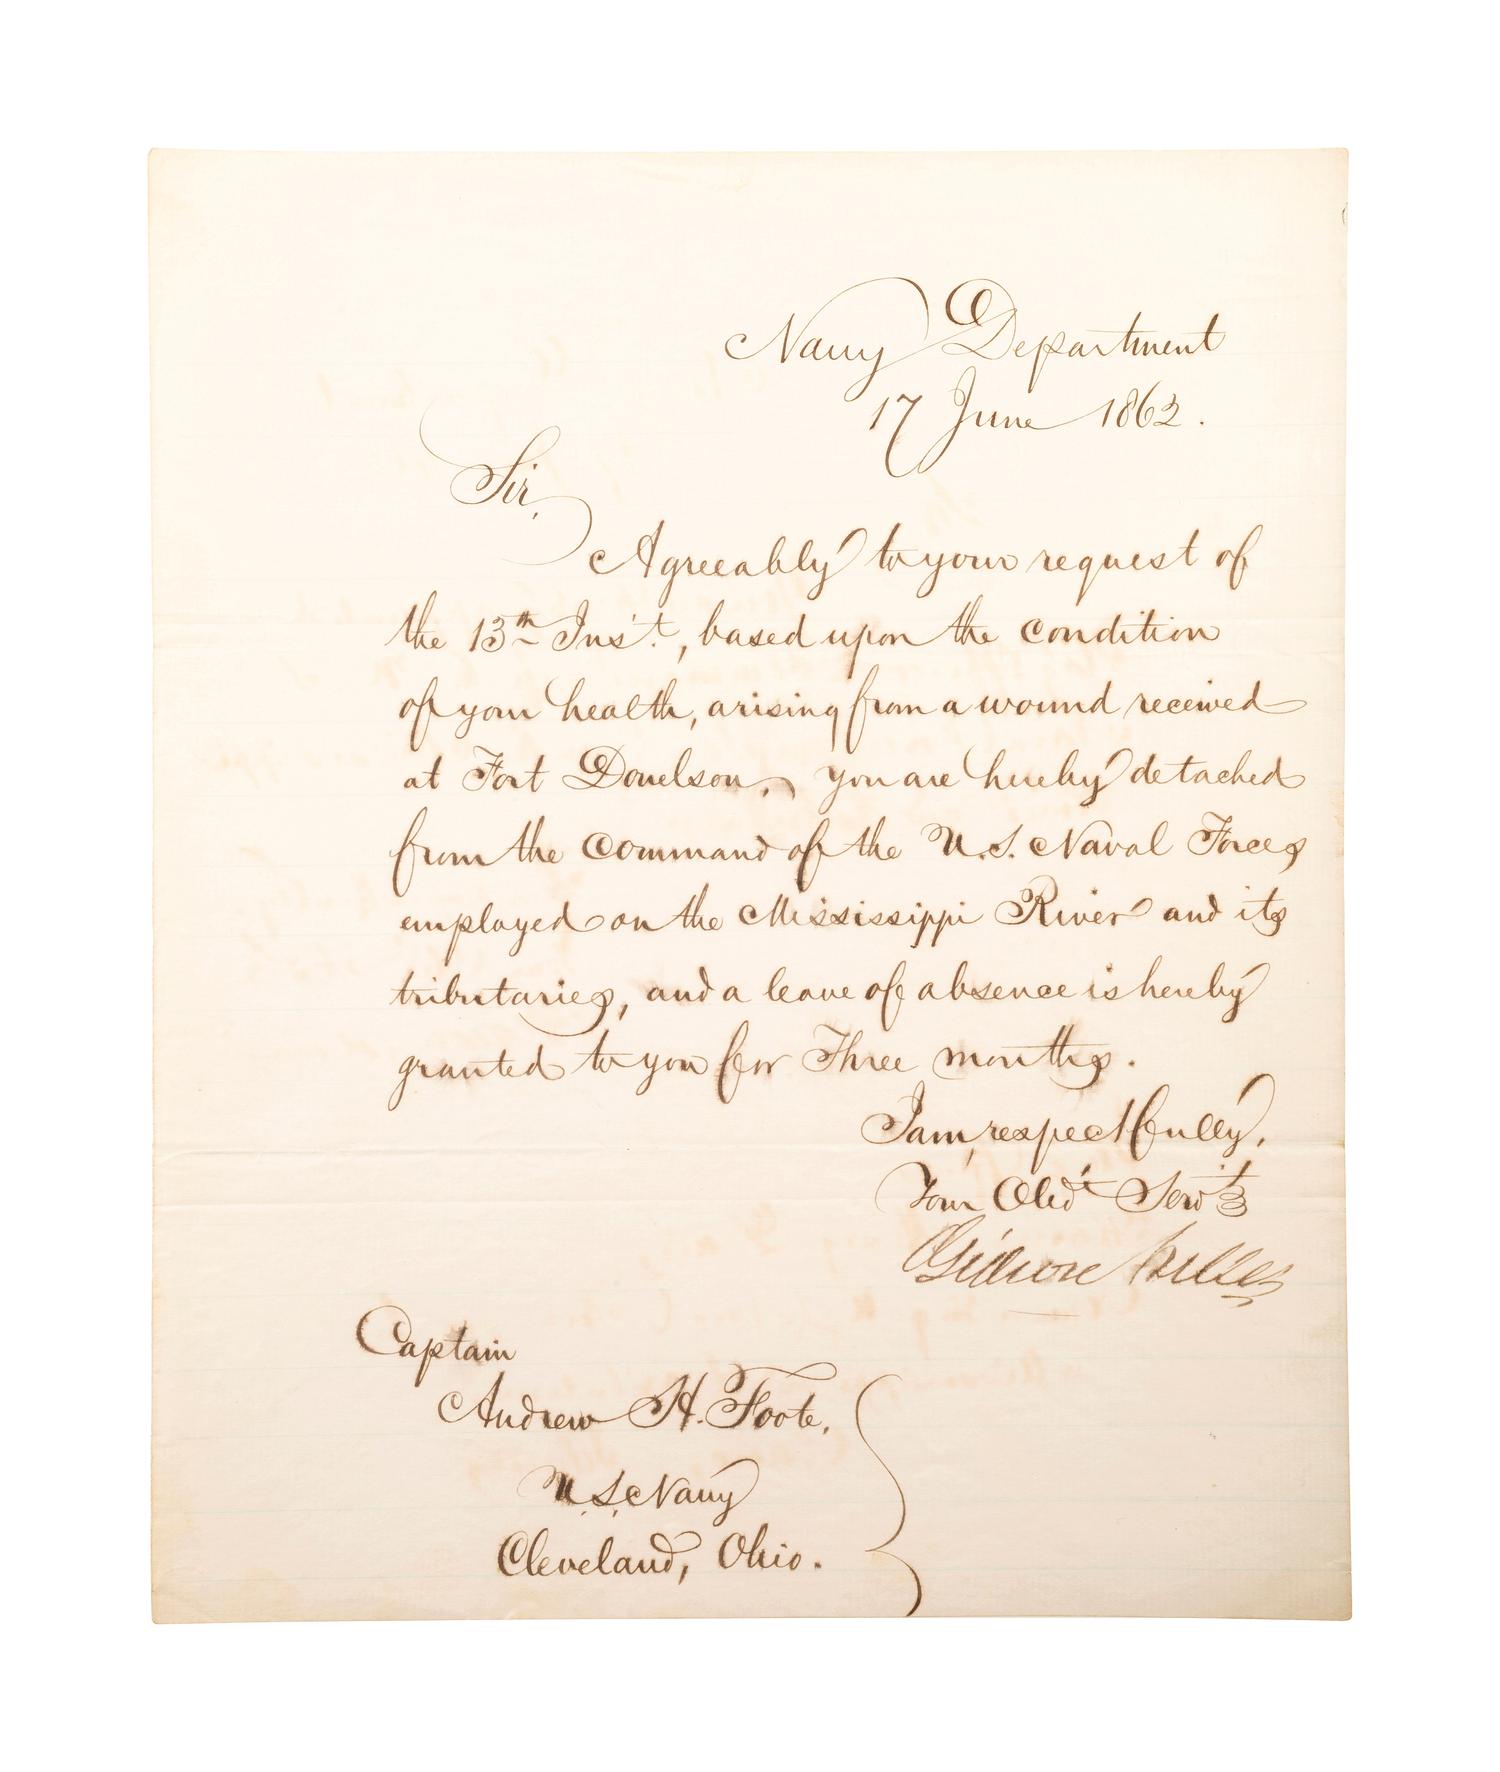 Navy Department
17 June 1862.
Sir,
Agreeably to your request of
the 13th Inst., based upon the condition
of your health, arising from a wound received
at Fort Donelson, you are hereby detached
from the command of the U.S. Naval Forces
employed on the Mississippi River and its
tributaries, and a leave of absence is hereby
granted to you for Three months.
I am, respectfully,
Your Obdt Servt
Gideon Welles
Captain
Andrew H. Foote,
U.S. Navy
Cleveland, Ohio.